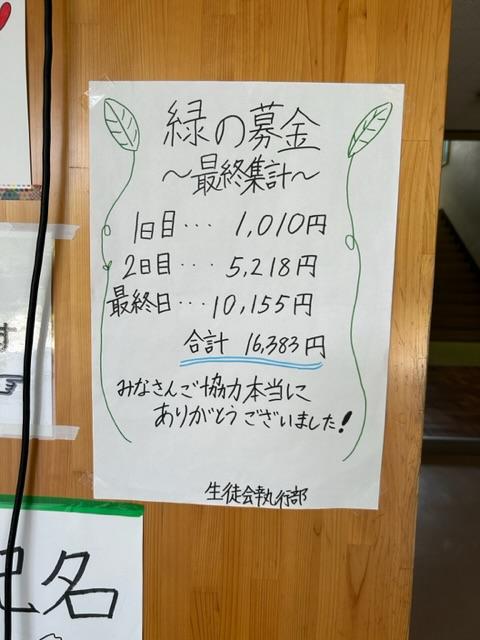 緑の募金
～最終集計～
1日目··· 1,010円
2日目··· 5,218円
最終日··· 10,155円
合計 16,383円
みなさんご協力本当に
ありがとうございました!
生徒会執行部
す
名